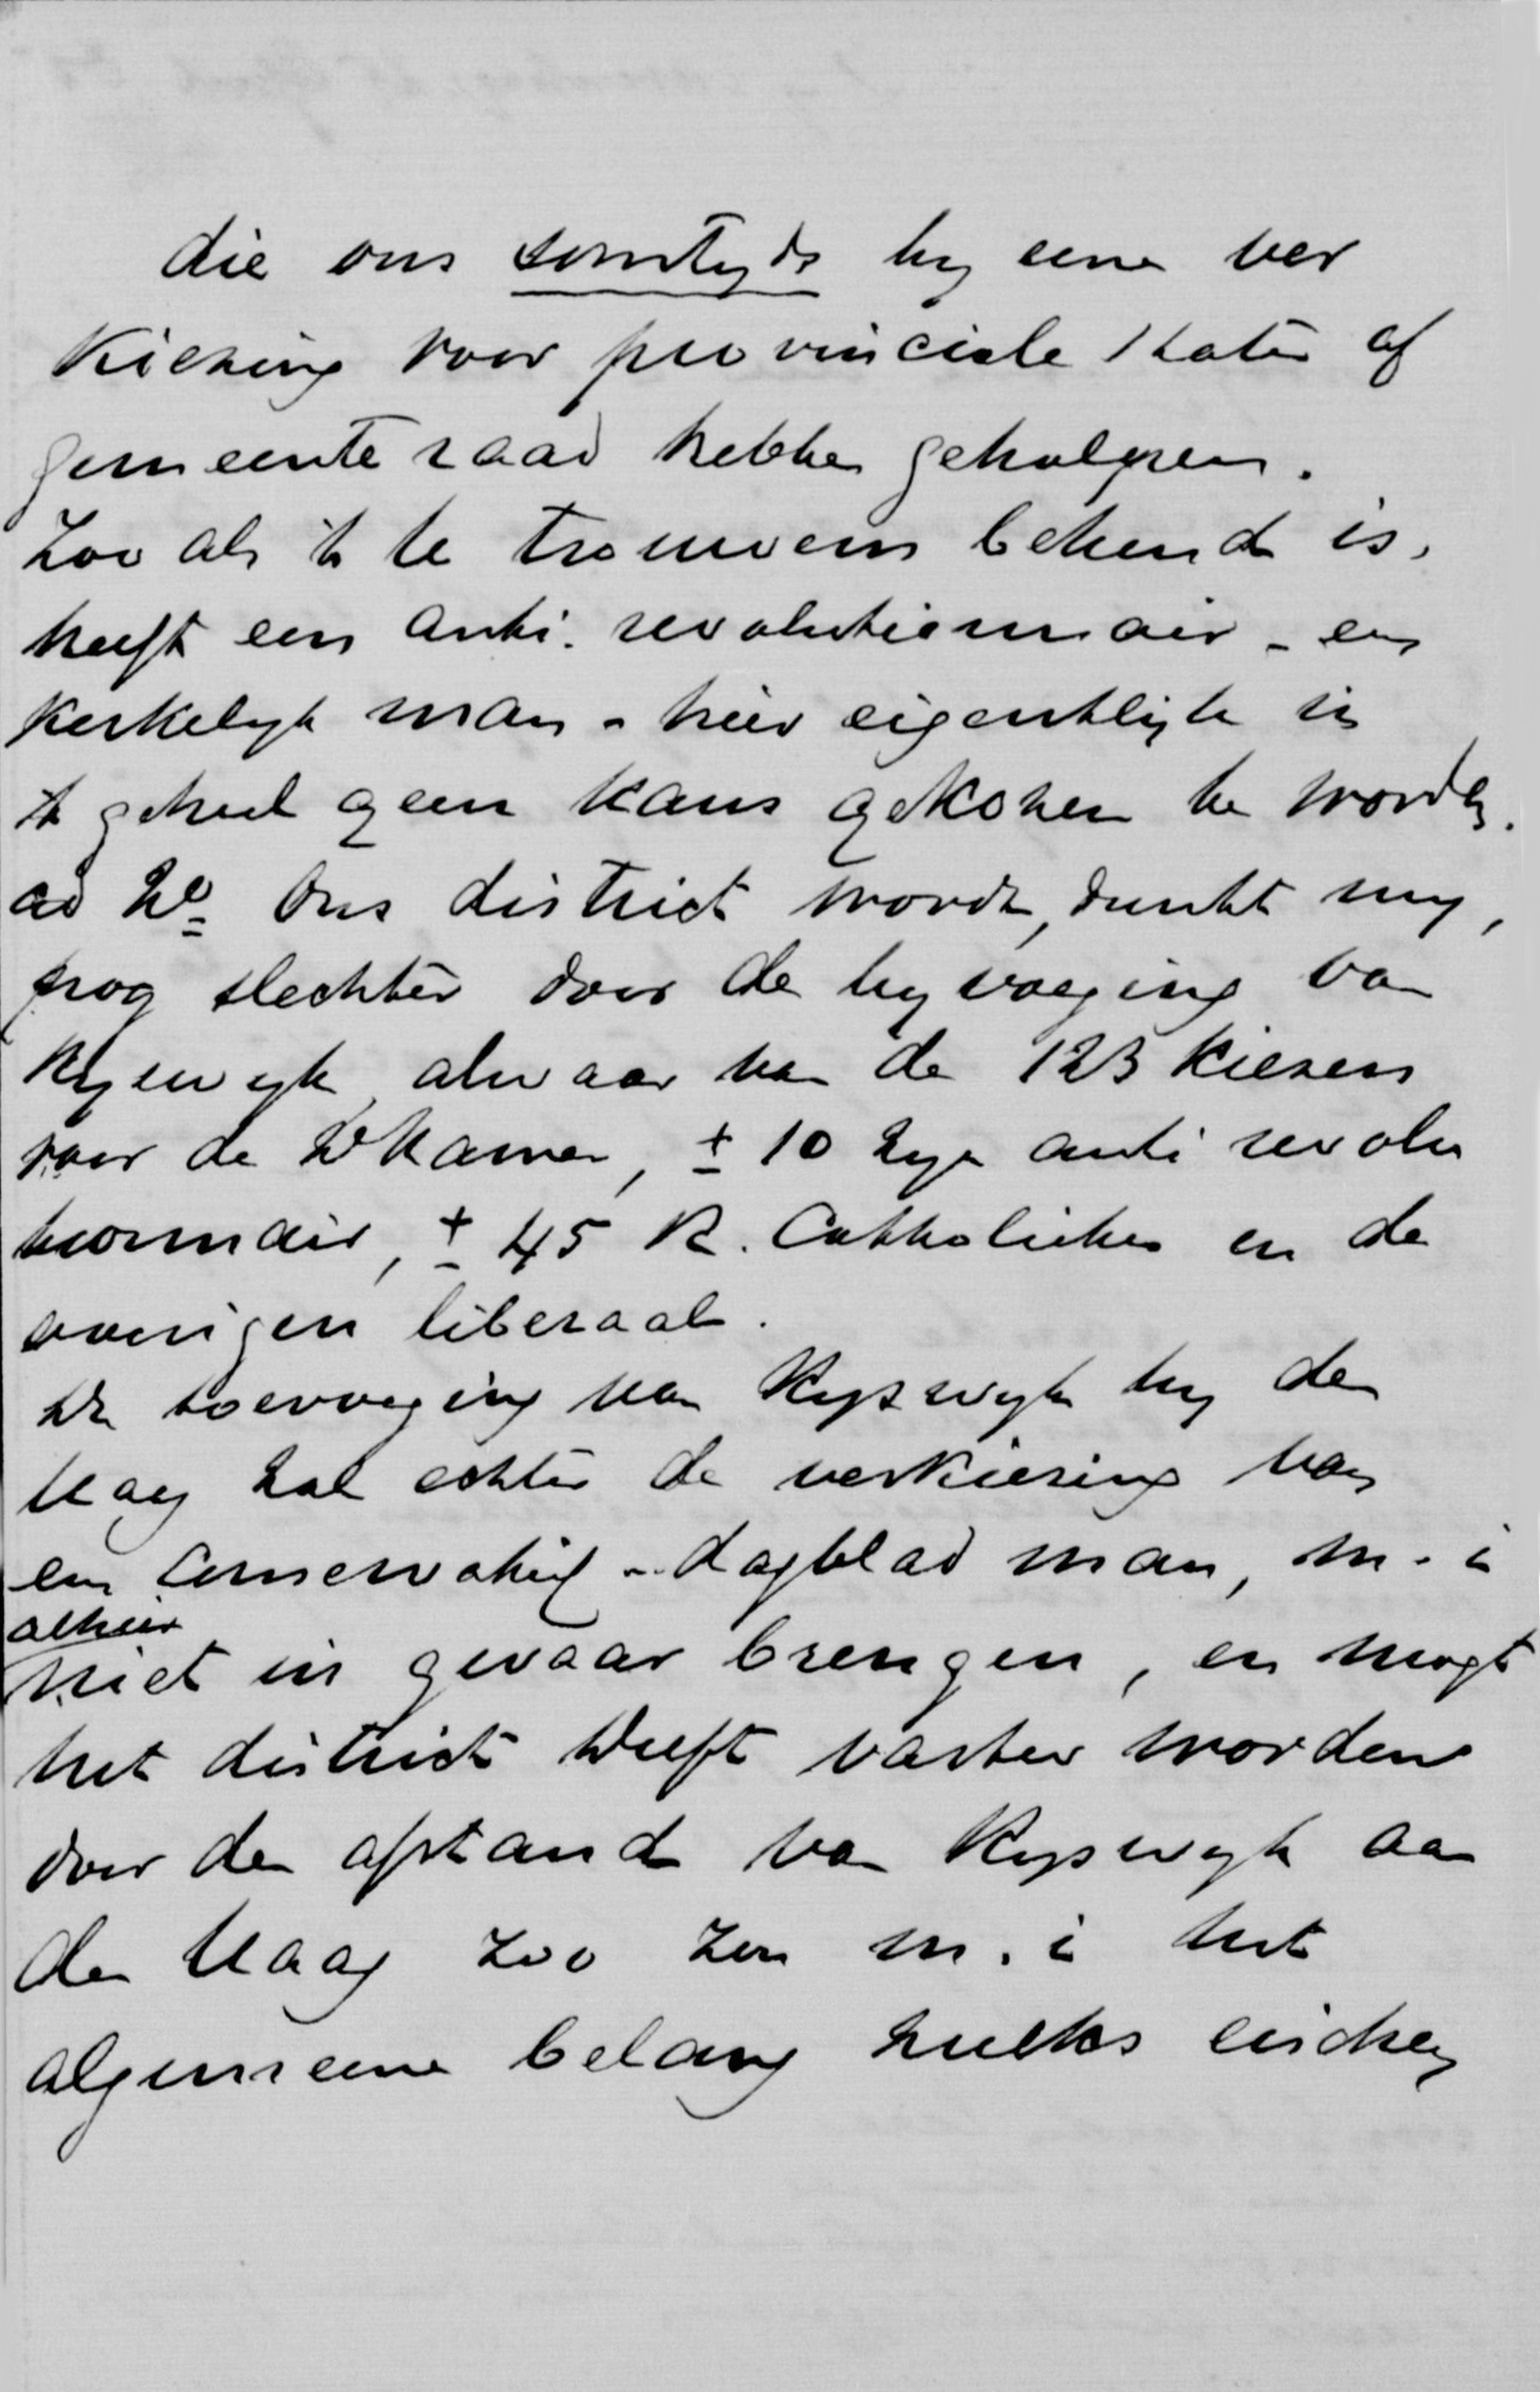 die ons somtyds by eene ver
kiezing voor provinciale staten of
gemeente raad hebben geholpen.
Zoo als 't te trouwens bekend is,
heeft een anti. revolutionnair - en
kerkelyk man - hier eigentlyk in
't geheel geen kans gekozen te worden.
ad 2o Ons district wordt, dunkt my,
nog slechter door de byvoeging van
Ryswyk alwaar van de 123 kiezers
voor de 2e Kamer, ± 10 zyn anti revolu
tionnair, ± 45 R. Catholieken en de
overigen liberaal.
De toevoeging van Ryswyk by den
Haag zal echter de verkiezing van
een Conservatief - dagblad man, m. i
alhier
niet in gevaar brengen, en mogt
het district Delft vaster worden
door den afstand van Ryswyk aan
den Haag zoo zou m. i het
algemeene belang zulks eischen